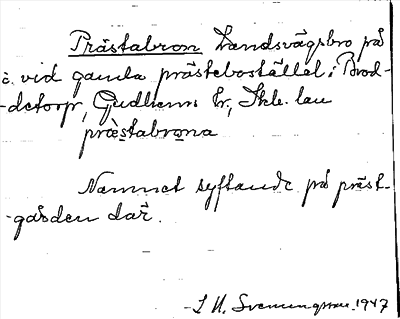 Prästabron Landsvägsbro på
å. vid gamla prästebostället i Brod-
-detorp, Gudhems hr, Skb. län
præstabrona
Namnet syftande på präst-
-gården där.
S H. Svenungsson. 1947